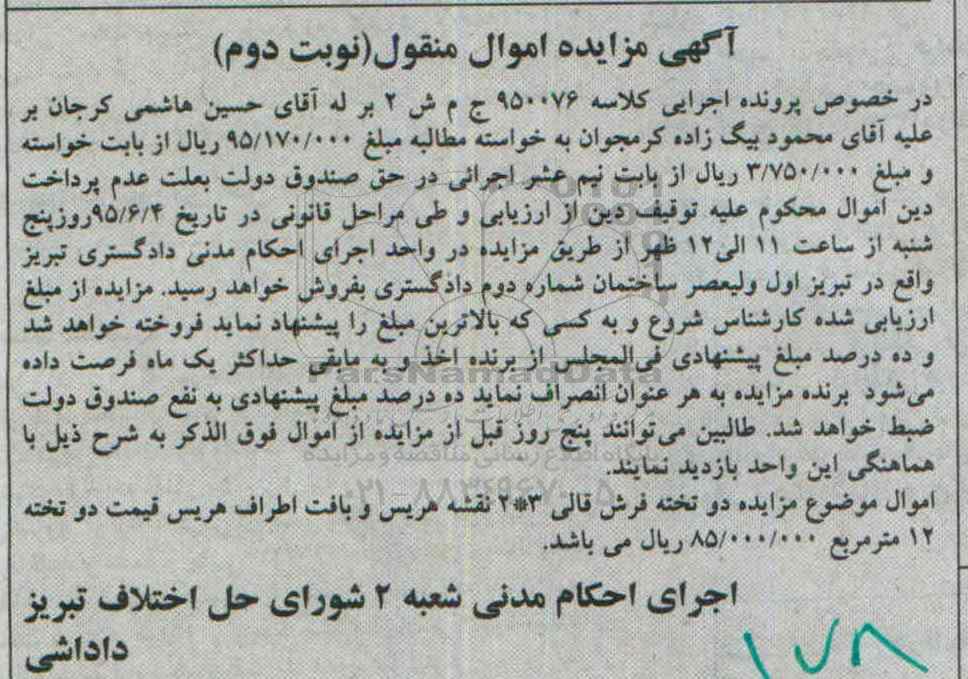 آگهی مزایده اموال منقول(نوبت دوم)
در خصوص پرونده اجرایی کلاسه ۹۵۰۰۷۶ ج م ش ۲ بر له آقای حسین هاشمی کرجان بر
علیه آقای محمود بیگ زاده کرمجوان به خواسته مطالبه مبلغ ۹۵/۱۷۰/۰۰۰ ریال از بابت خواسته
و مبلغ ۳/۷۵۰/۰۰۰ ریال از بابت نیم عشر اجرائی در حق صندوق دولت بعلت عدم پرداخت
دین اموال محکوم علیه توقیف دین از ارزیابی و طی مراحل قانونی در تاریخ ۹۵/۶/۴روزپنج
شنبه از ساعت ۱۱ الی۱۲ ظهر از طریق مزایده در واحد اجرای احکام مدنی دادگستری تبریز
واقع در تبریز اول ولیعصر ساختمان شماره دوم دادگستری بفروش خواهد رسید. مزایده از مبلغ
ارزیابی شده کارشناس شروع و به کسی که بالاترین مبلغ را پیشنهاد نماید فروخته خواهد شد
و ده درصد مبلغ پیشنهادی فی‌المجلس از برنده اخذ و به مابقی حداکثر یک ماه فرصت داده
می‌شود برنده مزایده به هر عنوان انصراف نماید ده درصد مبلغ پیشنهادی به نفع صندوق دولت
ضبط خواهد شد. طالبین می‌توانند پنج روز قبل از مزایده از اموال فوق الذکر به شرح ذیل با
هماهنگی این واحد بازدید نمایند.
اموال موضوع مزایده دو تخته فرش قالی ۳*۲ نقشه هریس و بافت اطراف هریس قیمت دو تخته
۱۲ مترمربع ۸۵/۰۰۰/۰۰۰ ریال می باشد.
اجرای احکام مدنی شعبه ۲ شورای حل اختلاف تبریز
داداشی
۱۷۸
ParsNamadData
پایگاه اطلاع رسانی مناقصه و مزایده
۰۲۱-۸۸۳۴۹۶۷۰-۵